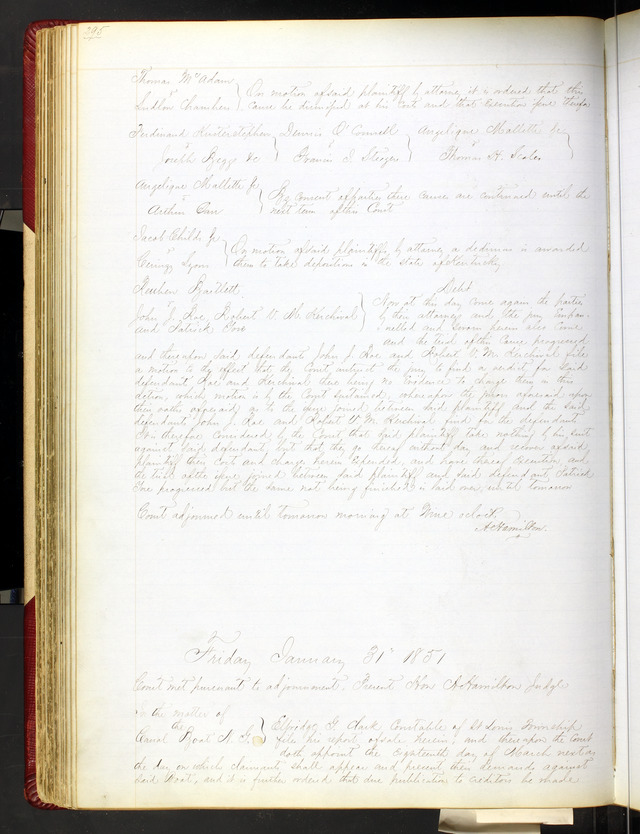 296
Thomas McAdam
v } On motion of said plaintiff by attorney it is ordered that this
Ludlow Chambers cause be dismissed at his cost and that Execution issue therefor
Ferdinand Dennis O'Connell Angelique Mallette &c
v v v
Joseph Beggs &c Francis D Thomas H.
Angelique Mallette &c
v } By consent of parties these causes are continued until the
Arthur Orr next term of this Court
Jacob Childs &c
v } On motion of said plaintiffs by attorney a dedimus is awarded
Lyon them to take deposition in the state of Kentucky
Reuben Bartlett Debt
v Now at this day come again the parties
John J. Roe, Robert V. M. Kerchival } by their attorneys and the jury empan-
and Patrick nelled and sworn herein also come
and the trial of this cause progressed
and thereupon said defendants John J. Roe and Robert V. M. Kerchival file
a motion to the effect that the Court instruct the jury to find a verdict for said
defendants Roe and Kerchival there being no evidence to charge them in this
action, which motion is by the Court sustained, whereupon the jurors aforesaid upon
their oaths aforesaid as to the issue joined between said plaintiff and the said
defendants John J. Roe and Robert V. M. Kerchival find for the defendants
It is therefore considered by the Court that said plaintiff take nothing by his suit
against said defendants but that they go hence without day and recover of said
plaintiff their costs and charges herein expended, and have thereof Execution and
the trial of the issue joined between said plaintiff and said defendant Patrick
progressed but the same not being finished is laid over until tomorrow
Court adjourned until tomorrow morning at Nine oclock
A Hamilton
Friday January 31st 1851
Court met pursuant to adjournment. Present Hon A Hamilton Judge
In the matter of
the } Elbridge G. Clark Constable of St Louis Township
Canal Boat N. G. files his report of sale herein, and thereupon the Court
doth appoint the Eighteenth day of March next as
the day on which claimants shall appear and present their demands against
said Boat, and it is further ordered that due publication to creditors be made